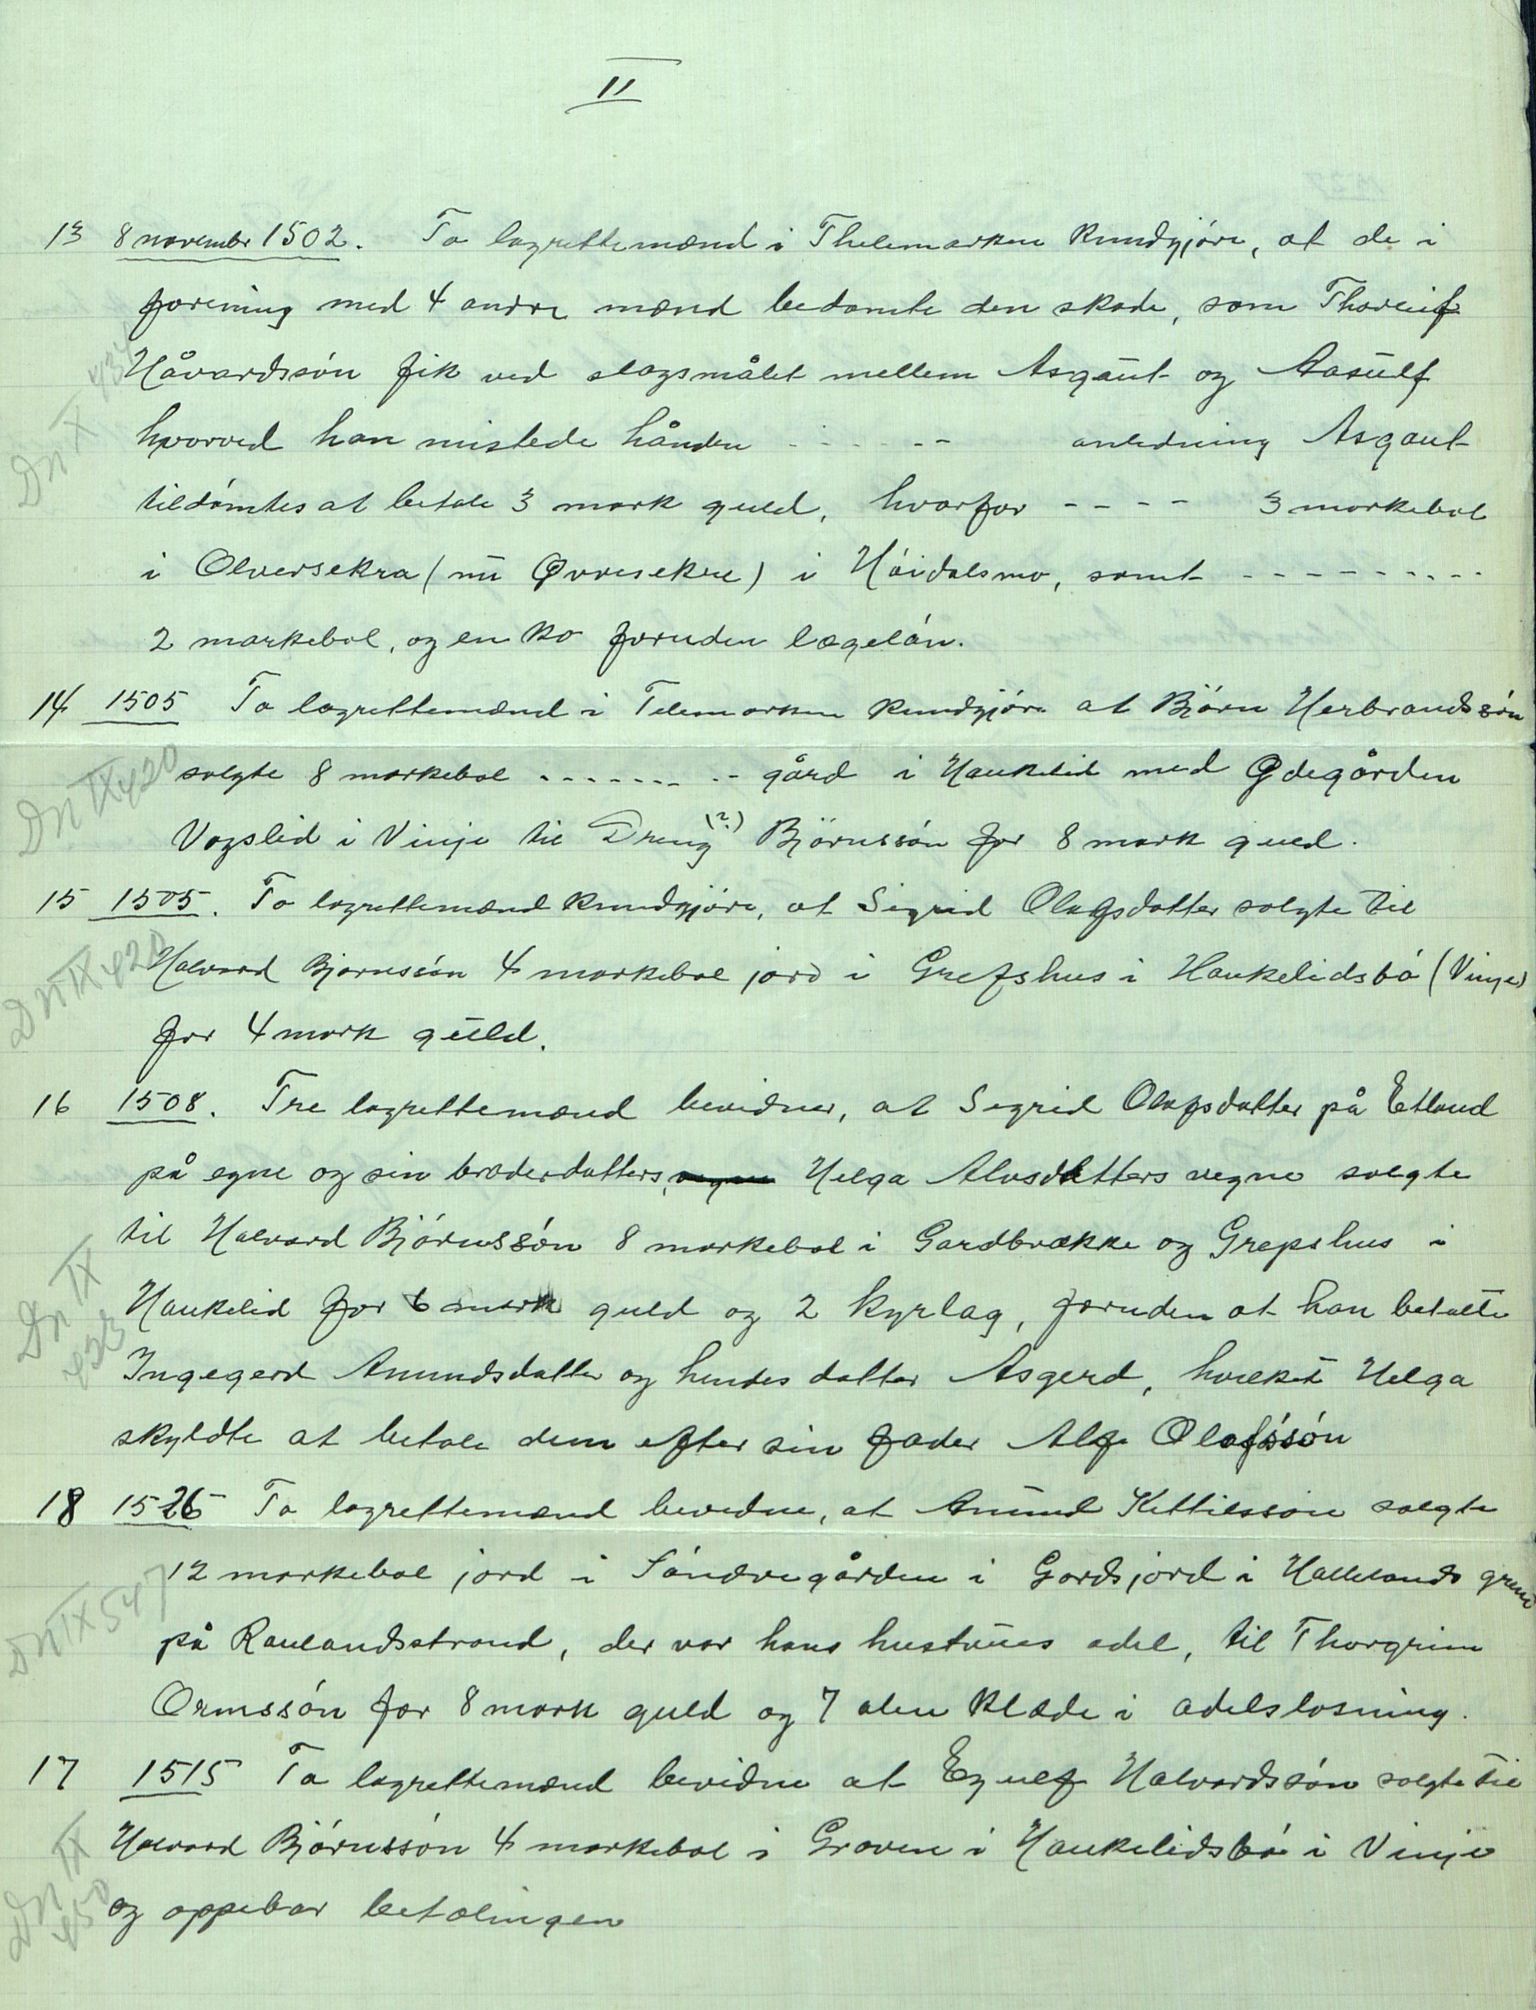 II
13 8 november 1502. To lagrettemænd i Thelemarken kundgjöre, at de i
forening med 4 andre mænd bedømte den skade, som Thorleif
Håvardssón fik ved slagsmålet mellem Asgaut og Aasulf
hvorved han mistede hånden - - - - - - anledning Asgaut
DN X 434
tildömtes at betale 3 mark guld, hvorfor - - - - 3 markebol
i Olversekra (nu Øvresekre) i Höidalsmo, samt - - - - - - - - -
2 markebol, og en ko foruden lægelön.
14 1505 To lagrettemænd i Telemarken kundgjöre at Björn Herbrandssön
solgte 8 markebol - - - - - - - - - gård i Haukelid med Ødegården
DN IX 420
Vogslid i Vinje til Dreng (?) Björnssón for 8 mark guld.
15 1505. To lagrettemænd kundgjöre, at Sigrid Olafsdatter solgte til
Halvard Bjornssón 4 markebol jord i Grefshus i Haukelidsbó (Vinje)
DN IX 420
for 4 mark guld.
16 1508. Tre lagrettemænd bevidner, at Sigrid Olafsdatter på Etland
på egne og sin broderdatters, Helga Alvsdatters vegne solgte
til Halvard Björnssón 8 markebol i Gardbrække og Grepshus i
DN IX 423
Haukelid for 6 mark guld og 2 kyrlag, foruden at han betalte
Ingegerd Amundsdatter og hendes datter Asgerd, hvilket Helga
skyldte at betale dem efter sin fader Alf Olafssón
18 1526 To lagrettemænd bevidne, at Amund Kettilsson solgte
12 markebol jord i Söndregården i Gardsjord i Hallelands grend
DN IX 547
på Raulandsstrand, der var hans hustrues odel, til Thorgrim
Ormssón for 8 mark guld og 7 alen klæde i odelslosning.
17 1515 To lagrettemænd bevidne at Eyulf Halvardssón solgte til
Halvard Björnssón 4 markebol i Groven i Haukelidsbó i Vinje
DN IX 450
og oppebar betalingen